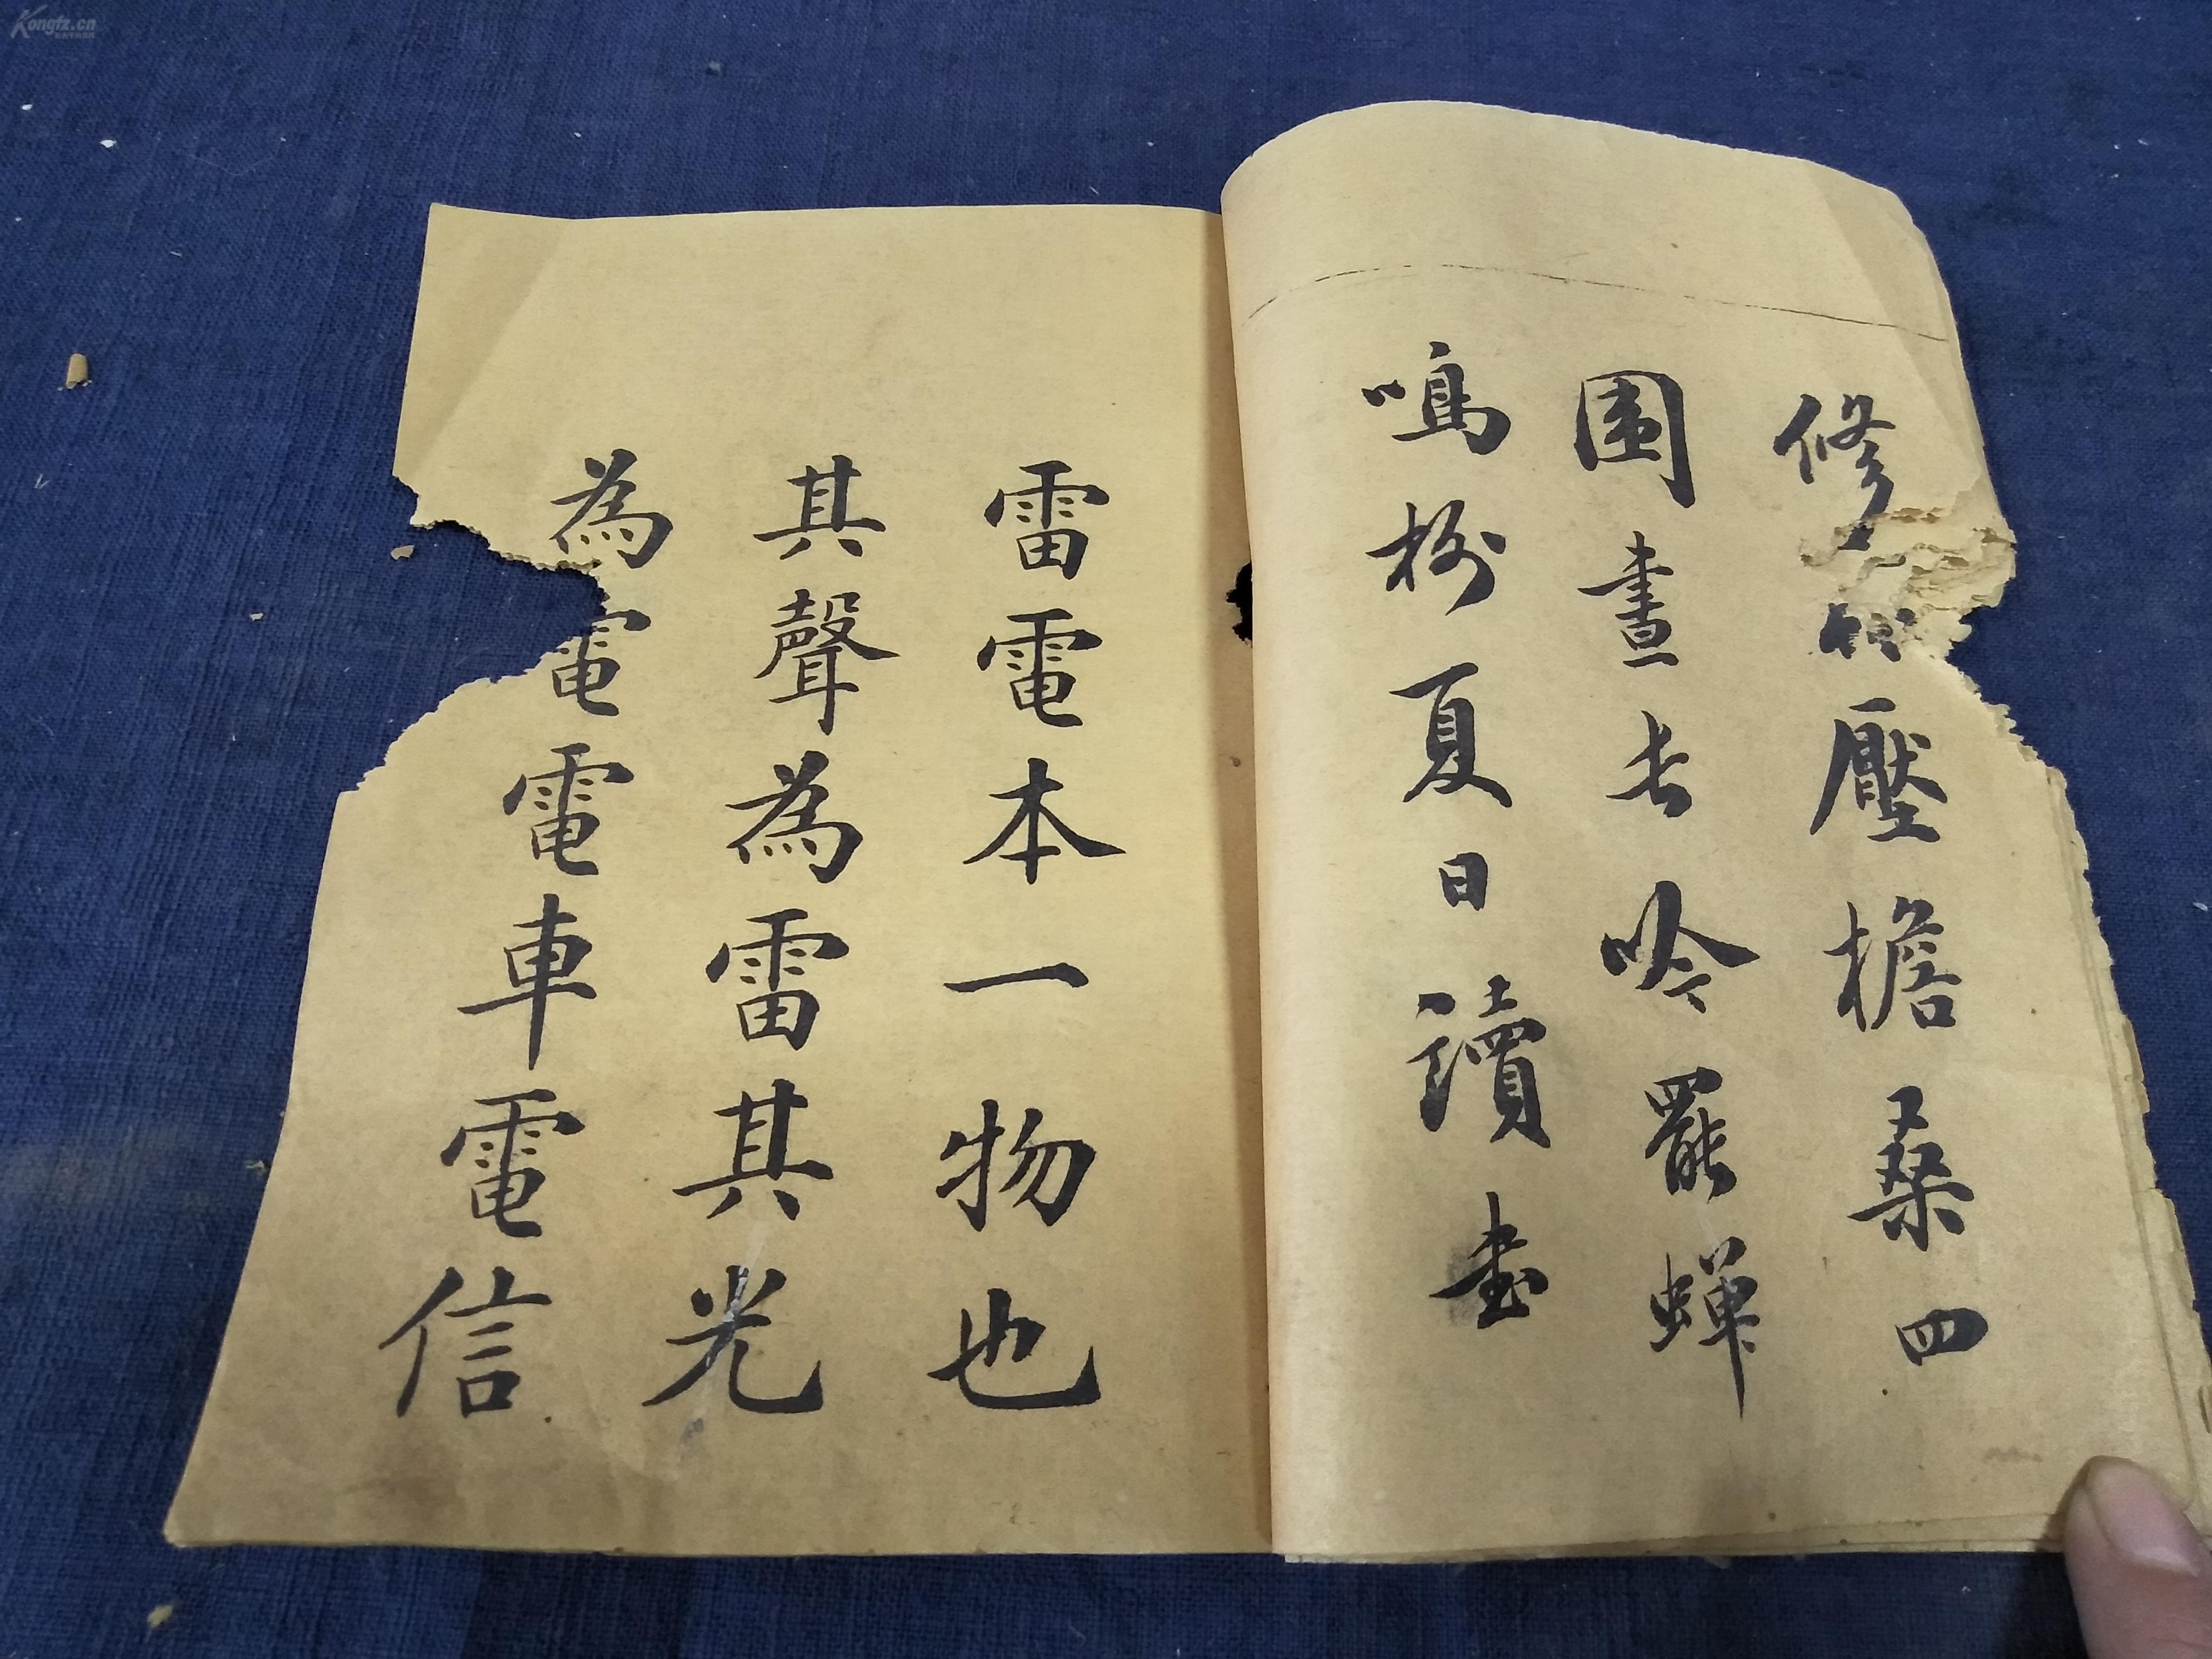 修竹壓檐桑四
圍晝長吟罷蟬
鳴樹夏日讀書
雷電本一物也
其聲為雷其光
為電電車電信
Kongfz.cn